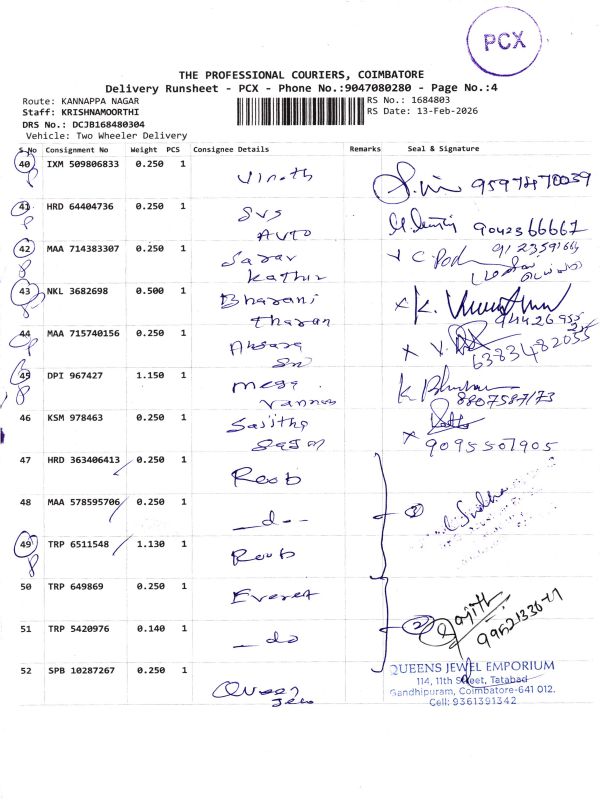 PCX
THE PROFESSIONAL COURIERS, COIMBATORE
Delivery Runsheet - PCX - Phone No.:9047080280 - Page No.:4
Route: KANNAPPA NAGAR
RS No.: 1684803
Staff: KRISHNAMOORTHI
RS Date: 13-Feb-2026
DRS No.: DCJB168480304
Vehicle: Two Wheeler Delivery
S.No Consignment No Weight PCS Consignee Details Remarks Seal & Signature
40 IXM 509806833 0.250 1 Vinoth 9597470039
41 HRD 64404736 0.250 1 SVS 9042366667
AUTO
42 MAA 714383307 0.250 1 Sarav
Kathir
43 NKL 3682698 0.500 1 Bharani K.
tharan
44 MAA 715740156 0.250 1 Aksara V.
Sri 6383482055
45 DPI 967427 1.150 1 mega K
Vannas 8807587173
46 KSM 978463 0.250 1 Sajitha
9095507905
47 HRD 363406413 0.250 1 Roob
48 MAA 578595706 0.250 1 _do-
49 TRP 6511548 1.130 1 Roob
50 TRP 649869 0.250 1 Everest
51 TRP 5420976 0.140 1 _do 2 Sajith
52 SPB 10287267 0.250 1 Queen
Jew
QUEENS JEWEL EMPORIUM
114, 11th Street, Tatabad
Gandhipuram, Coimbatore-641 012.
Cell: 9361391342